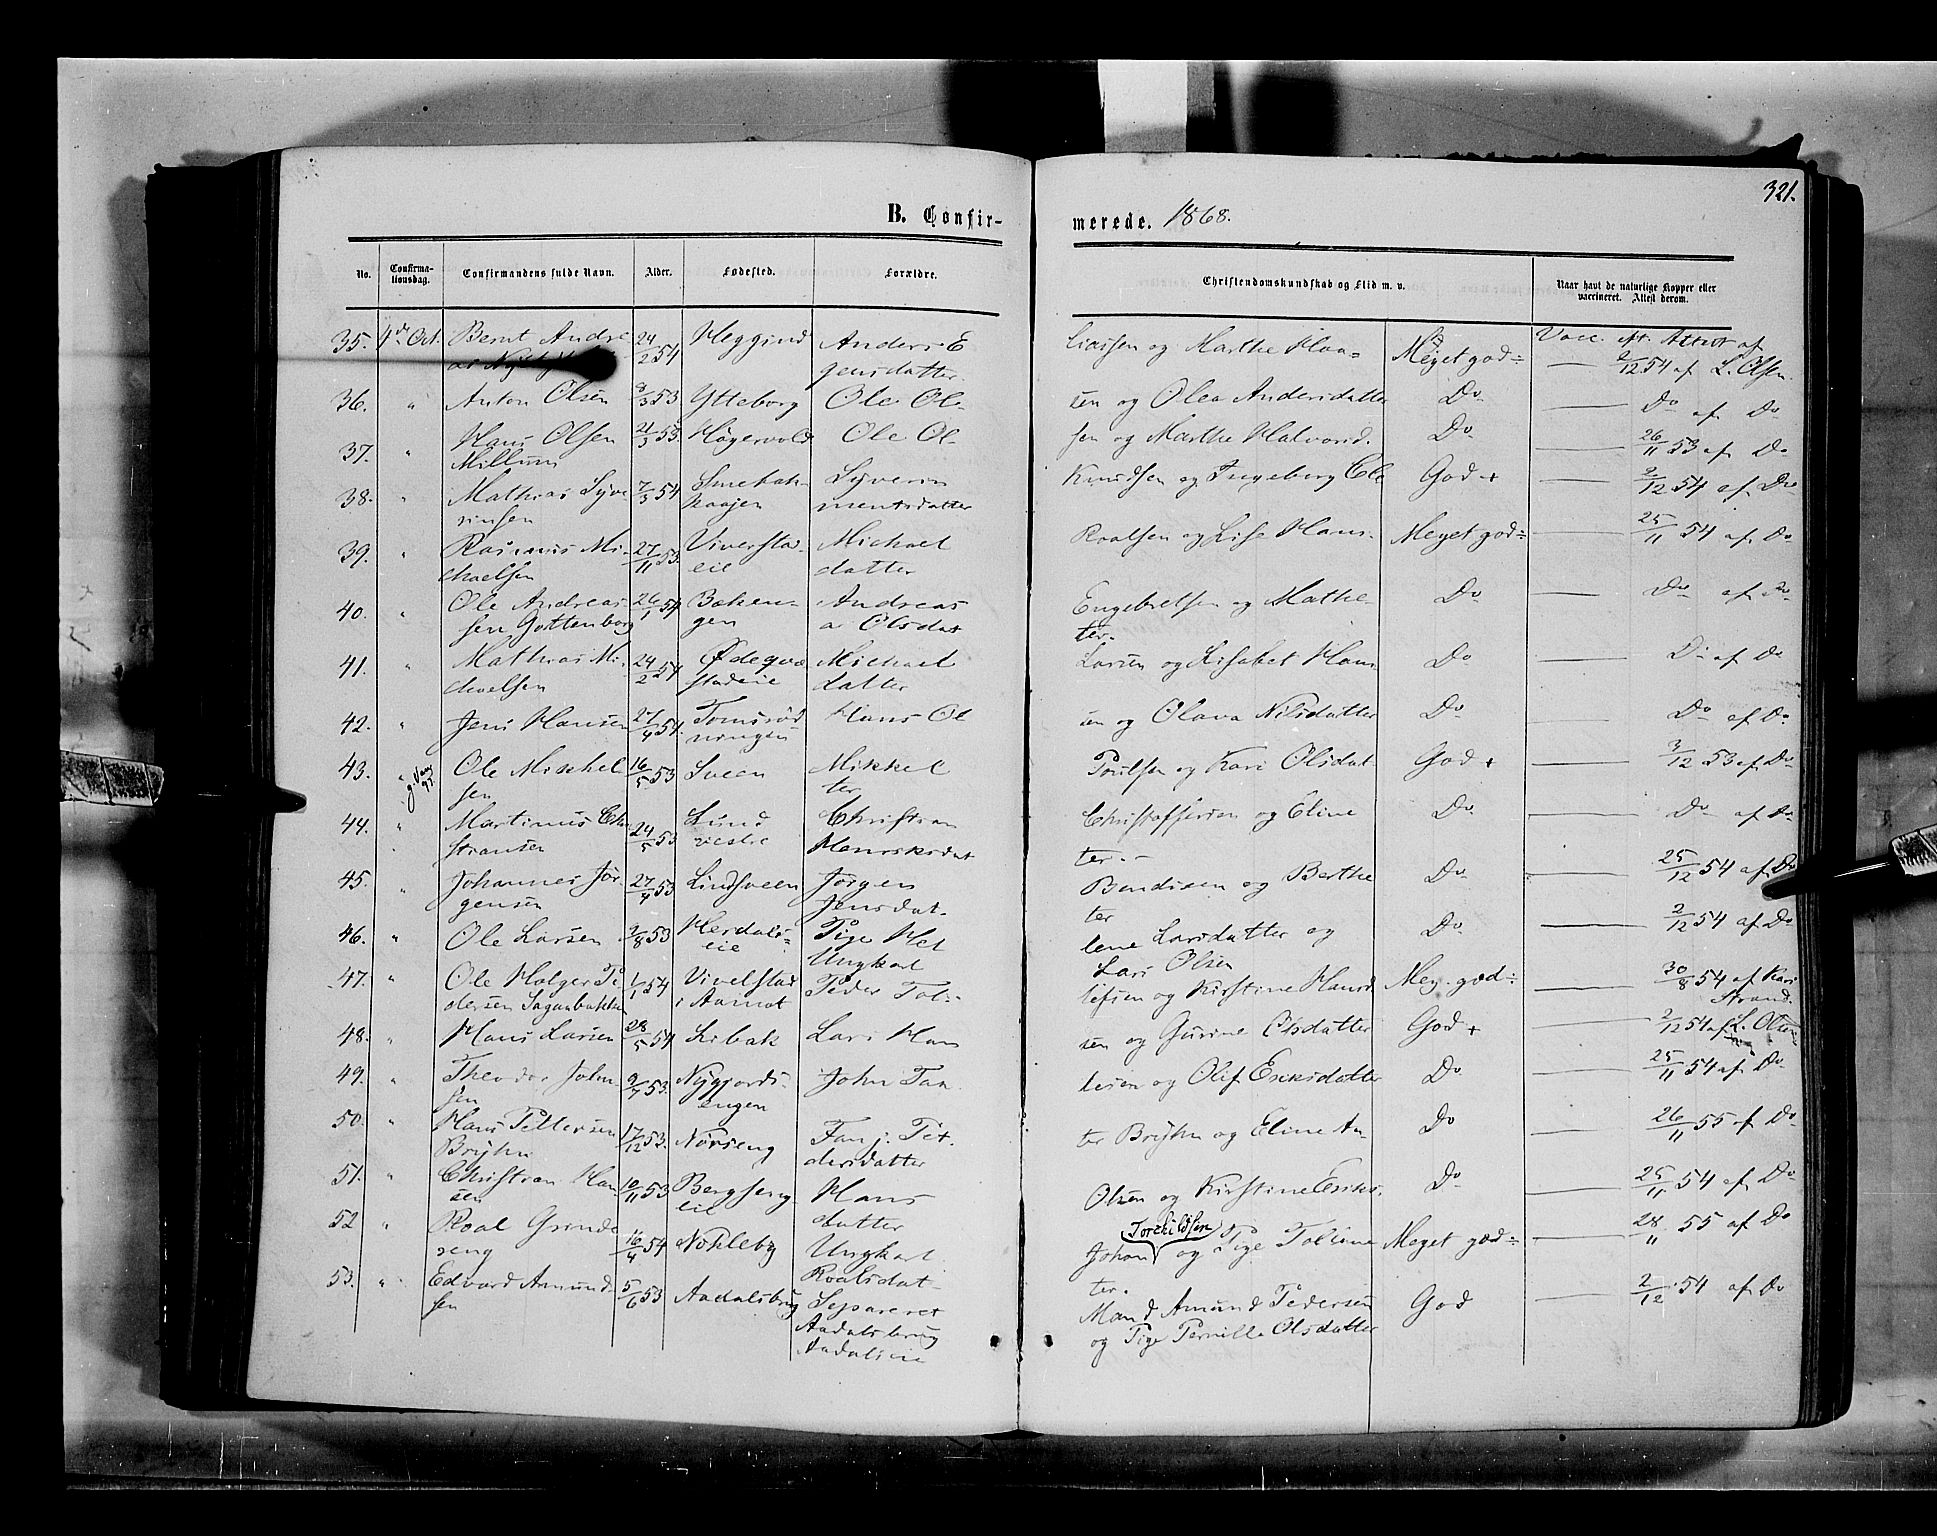 321.
B. Confirmerede. 1868.
No. Confirmationsdag. Confirmandens fulde Navn. Alder. Fødested. Forældre. Christendomskundskab og Flid m. v. Naar havt de naturlige Kopper eller vaccineret. Attest derom.
35. 4de Oct. Bernt Andre 24/2 54 Heggind Anders E liassen og Marthe Haa= Meget god ÷ Vacc. Attest af
gensdatter. — 2/12 54 af L. Olsen.
36. " Anton Olsen 8/3 53 Ytteborg Ole Ol- sen og Olea Andersdatter Do — Do af Do
37. " Hans Olsen 21/3 53. Høgervold Ole Ol- sen og Marthe Halvorsd. Do — 26/11 53 af Do
Millum
38. " Mathias Syve 7/3 54 Smebak- Syverin Knudsen og Ingeborg Cle God + — 2/12 54 af Do
rinsen haajen mentsdatter
39. " Rasmus Mi- 27/11 53. Viverstad Michael Roalsen og Lise Hans- Meget god ÷ — 25/11 54 af Do
chaelsen eie datter
40. " Ole Andreas- 26/1 54 Baken- Andreas Engebretsen og Mathe- Do — Do af Do
sen Gottenborg gen a Olsdat ter.
41. " Mathias Mi- 24/2 54 Michael Larsen og Lisabet Hans Do — Do af Do
chaelsen stadeie datter
42. " Jens Hansen 27/4 54. Tomsrød Hans Ol sen og Olava Nilsdatter Do — Do af Do
ningen
43. " Ole Mikkel 16/5 53 Sveen Mikkel Poulsen og Kari Olsdat- God + — 3/12 53 af Do
sen ter
44. " Martinus Chr 24/5 53 Lund Christian Christoffersen og Eline Do — Do af Do
stiansen vestre Henriksdat ter.-
45. " Johannes Jør- 27/4 53 Lindsveen Jørgen Bendixen og Berthe Do — 25/12 54 af Do
gensen Jensdat- ter
46. " Ole Larsen 2/8 53 Herdals- Pige Hel lene Larsdatter og Do — 2/12 54 af Do
eie Ungkarl Lars Olsen
47. " Ole Holger Pe- 1/1 54 Vivelstad Peder Tol- lefsen og Kirstine Hansd Meg. god ÷ — 30/8 54 af Kari
dersen Saganbakken i Aamot Strand.
48. " Hans Larsen 28/5 54 Libak Lars Hans sen og Gurine Olsdatter God + — 2/12 54 af L. Olsen
49. " Theodor John- 9/7 53. Nygjords- John Tan- lesen og Olif. Eriksdatter Do — 25/11 54 af Do
sen engen
50. " Hans Pettersen 17/12 53. Nørseng Fanj. Pet- ter Bryhn og Eline An- Do — 26/11 55 af Do
Bryhn dersdatter
51. " Christian Han- 10/11 53 Bergseng- Hans Olsen og Kirstine Eriks- Do — 25/11 54 af Do
sen eie datter
52 " Roal Grinde 16/4 54 Nokleby Ungkarl Johan Torkildsen og Pige Toline Meget god ÷ — 28/11 55 af Do
reng Roalsdat- ter.
53. " Edvard Amund 5/6 53 Aadalsbrug Separeret Mand Amund Pedersen God — 2/12 54 af Do
sen Aadalsbrug og Pige Pernille Olsdatter
Aadalseie